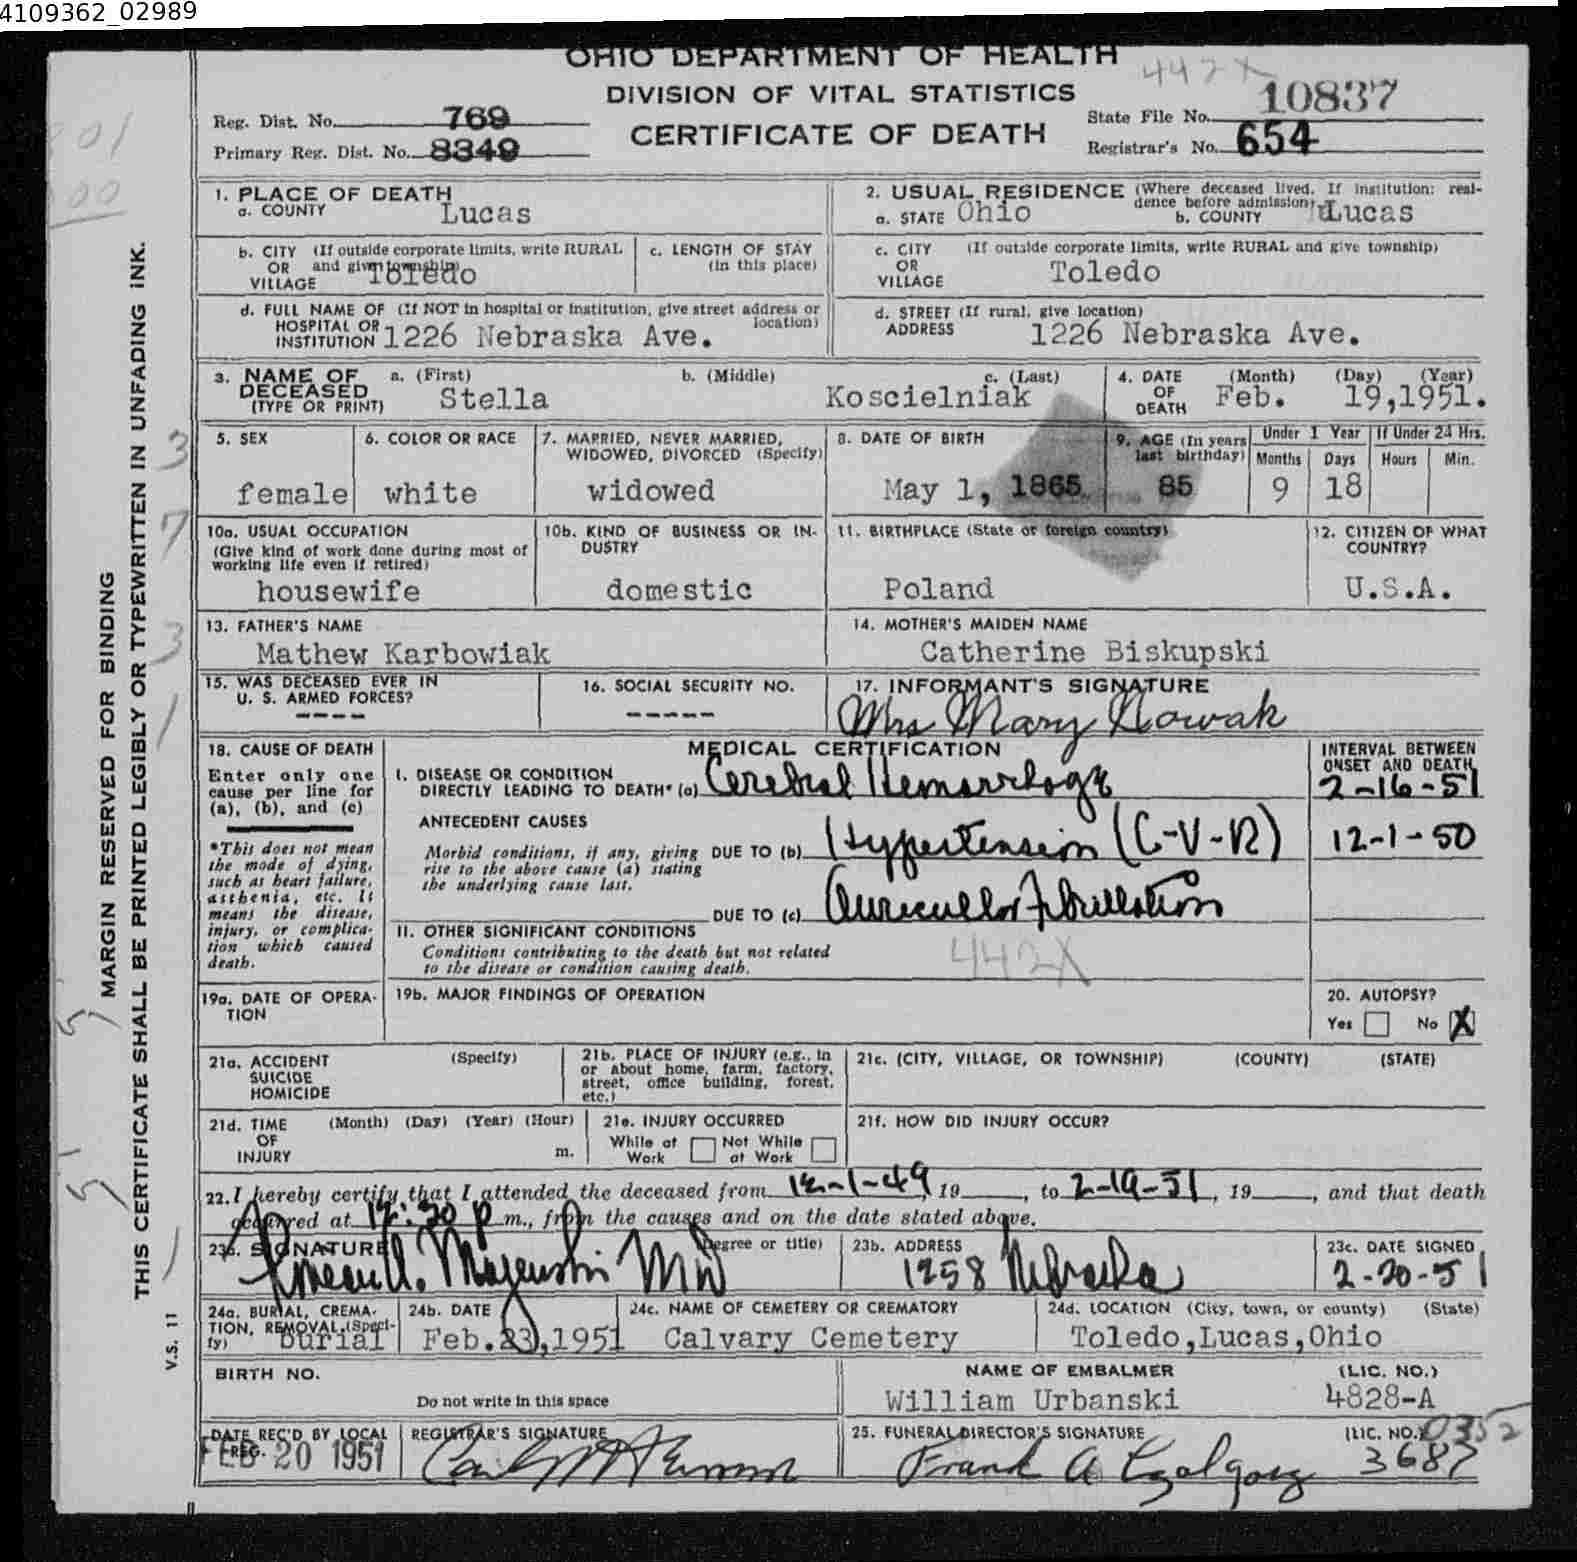 4109362_02989
OHIO DEPARTMENT OF HEALTH
DIVISION OF VITAL STATISTICS
CERTIFICATE OF DEATH
442X
Reg. Dist. No. 769
Primary Reg. Dist. No. 8349
State File No. 10837
Registrar's No. 654
1. PLACE OF DEATH
a. COUNTY Lucas
2. USUAL RESIDENCE (Where deceased lived. If institution: resi-
dence before admission)
a. STATE Ohio b. COUNTY Lucas
b. CITY (If outside corporate limits, write RURAL
OR and give township)
VILLAGE Toledo
c. LENGTH OF STAY
(in this place)
c. CITY (If outside corporate limits, write RURAL and give township)
OR
VILLAGE Toledo
d. FULL NAME OF (If NOT in hospital or institution, give street address or
location)
HOSPITAL OR
INSTITUTION 1226 Nebraska Ave.
d. STREET (If rural, give location)
ADDRESS 1226 Nebraska Ave.
3. NAME OF
DECEASED
(TYPE OR PRINT)
a. (First) b. (Middle) c. (Last)
Stella Koscielniak
4. DATE (Month) (Day) (Year)
OF
DEATH Feb. 19,1951.
5. SEX
female
6. COLOR OR RACE
white
7. MARRIED, NEVER MARRIED,
WIDOWED, DIVORCED (Specify)
widowed
8. DATE OF BIRTH
May 1, 1865
9. AGE (In years
last birthday)
85
Under 1 Year If Under 24 Hrs.
Months Days Hours Min.
9 18
10a. USUAL OCCUPATION
(Give kind of work done during most of
working life even if retired)
housewife
10b. KIND OF BUSINESS OR IN-
DUSTRY
domestic
11. BIRTHPLACE (State or foreign country)
Poland
12. CITIZEN OF WHAT
COUNTRY?
U.S.A.
13. FATHER'S NAME
Mathew Karbowiak
14. MOTHER'S MAIDEN NAME
Catherine Biskupski
15. WAS DECEASED EVER IN
U. S. ARMED FORCES?
----
16. SOCIAL SECURITY NO.
-----
17. INFORMANT'S SIGNATURE
Mrs Mary Nowak
18. CAUSE OF DEATH
Enter only one
cause per line for
(a), (b), and (c)
*This does not mean
the mode of dying,
such as heart failure,
asthenia, etc. It
means the disease,
injury, or complica-
tion which caused
death.
MEDICAL CERTIFICATION
INTERVAL BETWEEN
ONSET AND DEATH
I. DISEASE OR CONDITION
DIRECTLY LEADING TO DEATH* (a) Cerebral Hemorrhage 2-16-51
ANTECEDENT CAUSES
Morbid conditions, if any, giving
rise to the above cause (a) stating
the underlying cause last.
DUE TO (b) Hypertension (C-V-R) 12-1-50
DUE TO (c) Auricular Fibrillation
II. OTHER SIGNIFICANT CONDITIONS
Conditions contributing to the death but not related
to the disease or condition causing death.
442X
19a. DATE OF OPERA-
TION
19b. MAJOR FINDINGS OF OPERATION
20. AUTOPSY?
Yes No X
21a. ACCIDENT (Specify)
SUICIDE
HOMICIDE
21b. PLACE OF INJURY (e.g., in
or about home, farm, factory,
street, office building, forest,
etc.)
21c. (CITY, VILLAGE, OR TOWNSHIP) (COUNTY) (STATE)
21d. TIME (Month) (Day) (Year) (Hour)
OF
INJURY m.
21e. INJURY OCCURRED
While at Work Not While at Work
21f. HOW DID INJURY OCCUR?
22. I hereby certify that I attended the deceased from 12-1-49, 19 , to 2-19-51, 19 , and that death
occurred at 12:30 p m., from the causes and on the date stated above.
23a. SIGNATURE (Degree or title)
MD
23b. ADDRESS
1258 Nebraska
23c. DATE SIGNED
2-20-51
24a. BURIAL, CREMA-
TION, REMOVAL (Speci-
fy) burial
24b. DATE
Feb.23,1951
24c. NAME OF CEMETERY OR CREMATORY
Calvary Cemetery
24d. LOCATION (City, town, or county) (State)
Toledo,Lucas,Ohio
BIRTH NO.
Do not write in this space
NAME OF EMBALMER (LIC. NO.)
William Urbanski 4828-A
DATE REC'D BY LOCAL
REG.
FEB 20 1951
REGISTRAR'S SIGNATURE
25. FUNERAL DIRECTOR'S SIGNATURE (LIC. NO.)
0352
Frank A 3687
MARGIN RESERVED FOR BINDING
THIS CERTIFICATE SHALL BE PRINTED LEGIBLY OR TYPEWRITTEN IN UNFADING INK.
V.S. 11
3
7
3
1
5
5
1